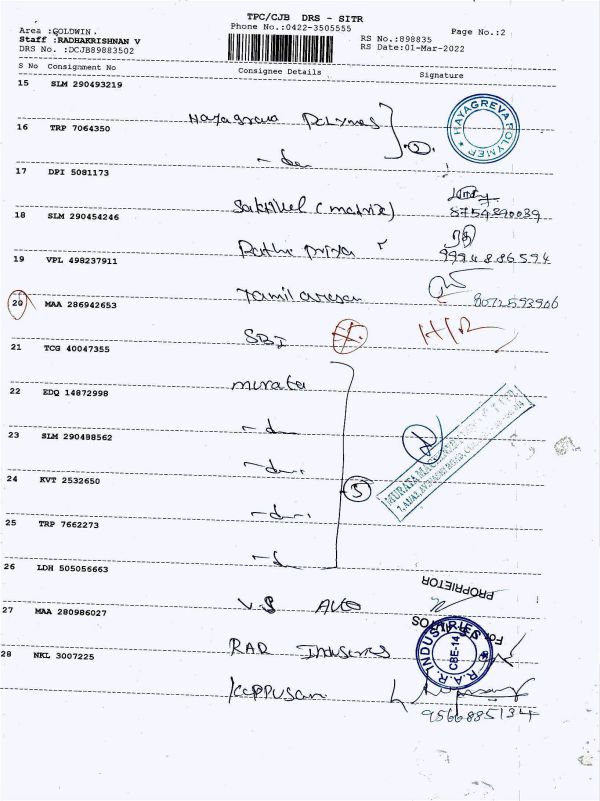 TPC/CJB DRS - SITR
Area :GOLDWIN. Phone No.:0422-3505555 Page No.:2
Staff :RADHAKRISHNAN V RS No.:898835
DRS No. :DCJB89883502 RS Date:01-Mar-2022
S No Consignment No Consignee Details Signature
15 SLM 290493219
Hayagreva Polymers HAYAGREVA POLYMER
16 TRP 7064350 2
17 DPI 5081173
Sakthivel (matrix) 8754890039
18 SLM 290454246
Rathi priya 9994886594
19 VPL 498237911
Tamil arasan 8072593906
20 MAA 286942653
SBI H/R
21 TCG 40047355
murata
22 EDQ 14872998
23 SLM 290488562
24 KVT 2532650 5
25 TRP 7662273
26 LDH 505056663
PROPRIETOR
VS Auto For
27 MAA 280986027
RAR Industries R.A.R. INDUSTRIES CBE-14
28 NKL 3007225
Kuppusam
9566885134